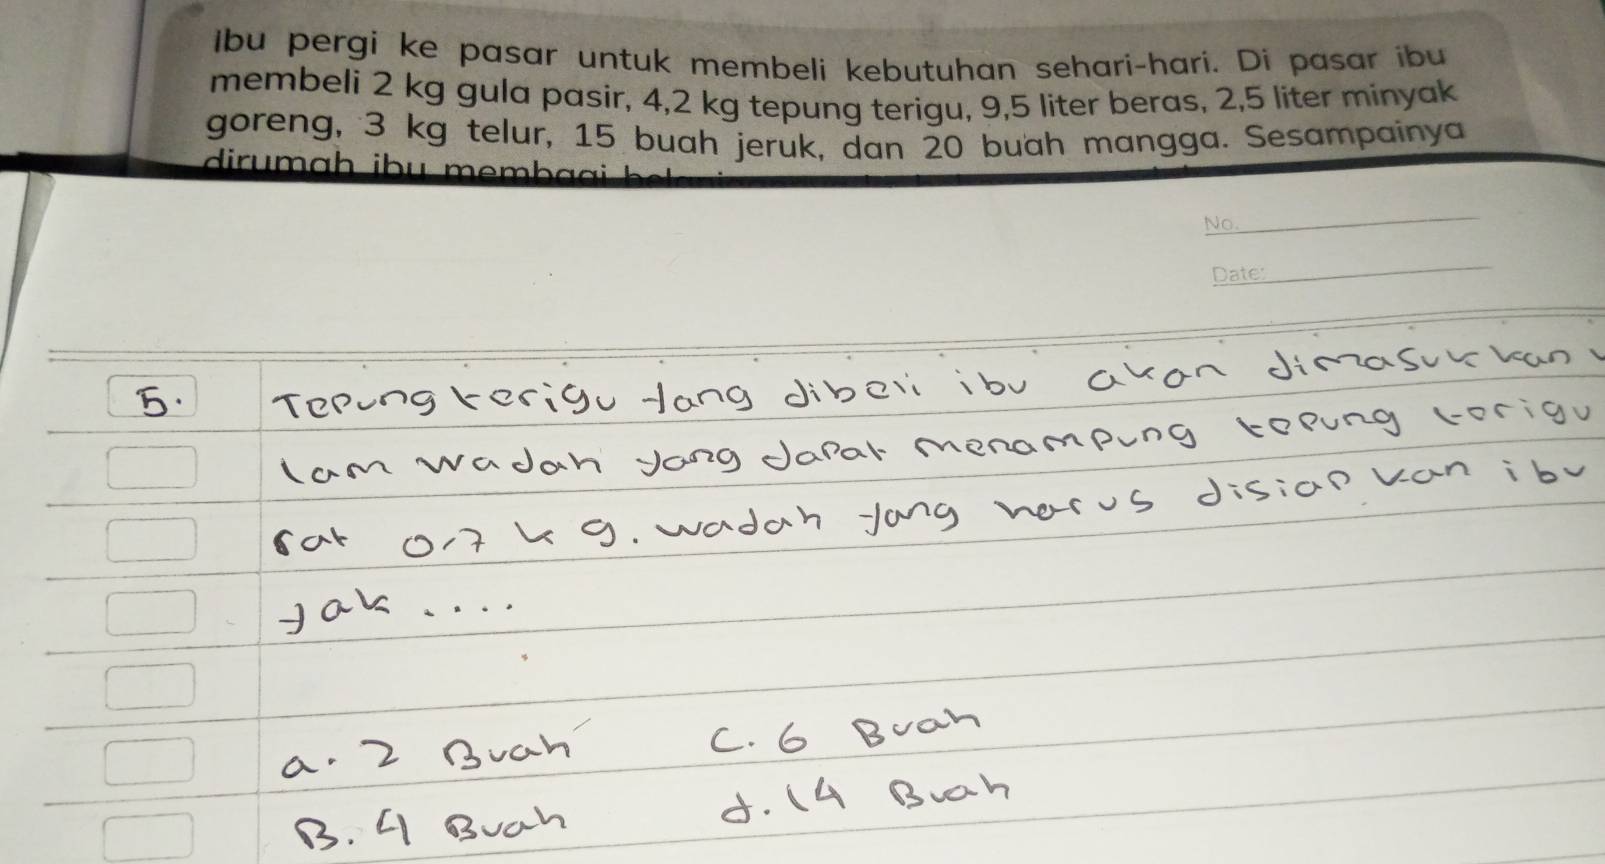 Ibu pergi ke pasar untuk membeli kebutuhan sehari-hari. Di pasar ibu
membeli 2 kg gula pasir, 4,2 kg tepung terigu, 9,5 liter beras, 2,5 liter minyak
goreng, 3 kg telur, 15 buah jeruk, dan 20 buah mangga. Sesampainya
dirumah ibu membagi
No.
Date:
5. Tepung terigu yang dibeli ibu akan dimasukkan
lam wadah yang dapat menampung tepung terigu
rat 0,7 kg. wadah yang harus disiapkan ibu
yak ....
a. 2 Buah c. 6 Buah
B. 4 Buah d. 14 Buah